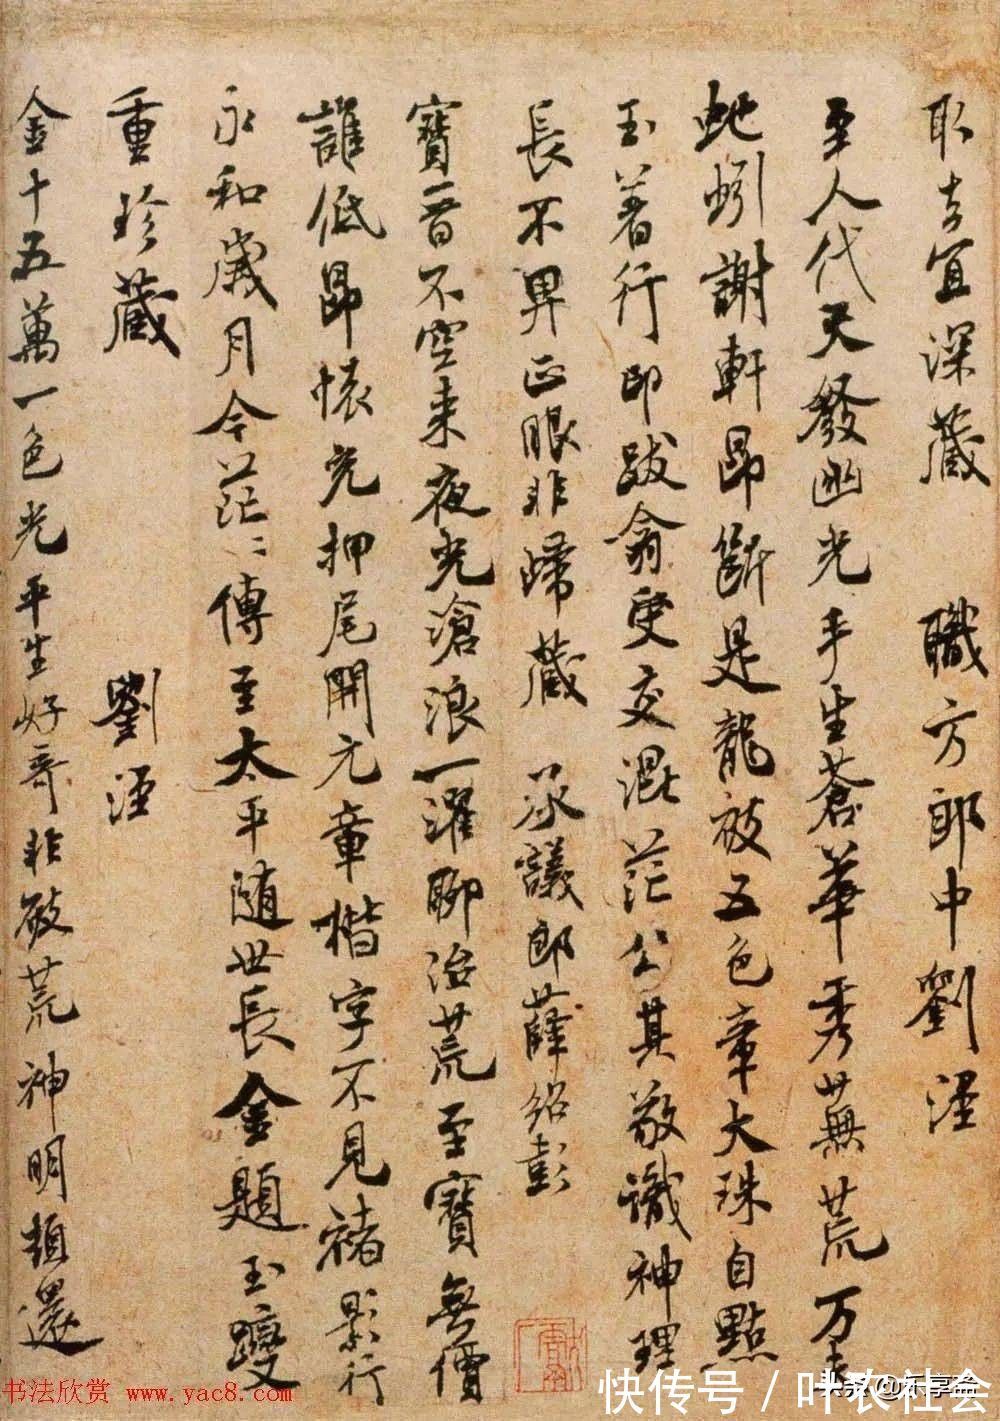 取去宜深藏 職方郎中劉涇
至人代天發幽光手生蒼華秀蕪荒万
虵蚓謝軒昂斷是龍被五色章大珠自點
玉著行印跋翕受交混茫公其敬識神理
長不畀正眼非歸藏 承議郎薛紹彭
寶晋不空来夜光滄浪一濯聊治荒至寶無價
誰低昂懐充押尾開元章楷字不見褚影行
永和歲月今茫〻傳至太平随世長金題玉躞
重珍藏 劉涇
金十五萬一色光平生好奇非破荒神明頓還
书法欣赏 www.yac8.com
快传号/叶农社会
头条